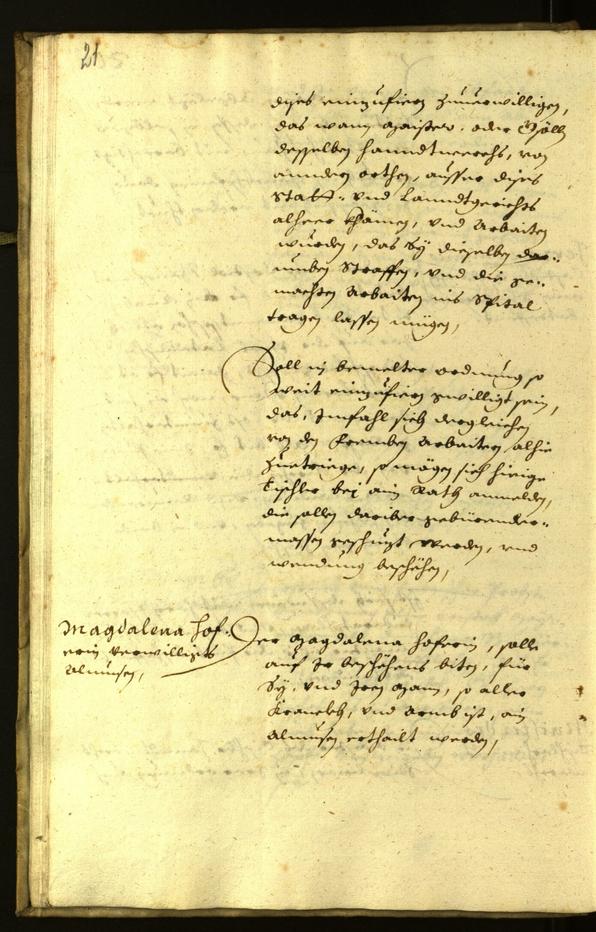 21
dises einzufiern zuuerwilligen,
das wann Maister, oder Gsölln
desselben Hanndtwerchs, von
anndern orthen, ausser dises
Statt- vnd Lanndtgerichts
alheer khämen, vnd Arbaiten
wurden, das Sy dieselben dar-
umben Straffen, vnd die ge-
machten Arbaiten ins Spital
tragen lassen mügen,
Soll in bemelter ordnung so
weit einzufiern gwilligt sein,
das, Imfahl sich dergleichen
von den frembden Arbaitern alhie
zuetriege, so mögen sich hieige
Tischler bej ain Rath anmelden,
die sollen dariber gebürender-
massen geschuzt werden, vnd
wendung beschehen,
Magdalena Hof-
erin verwilligts
Almusen,
Der Magdalena Hoferin, solle
auf Ir beschehens biten, für
Sy, vnd Iren Mann, so aller
Kranckh, vnd Armb ist, ain
Almusen erthailt werden,